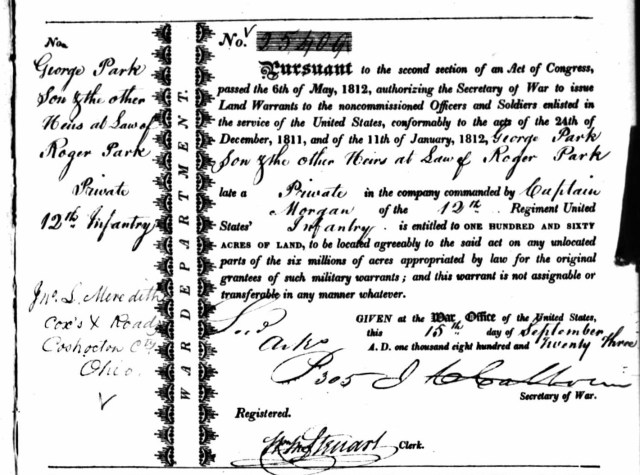 No.
George Park
Son & the other
Heirs at Law of
Roger Park
Private
12th Infantry
Jno. L. Meredith
Cox's X Road
Coshocton Cty
Ohio.
WAR DEPARTMENT.
No. 25409
Pursuant to the second section of an Act of Congress,
passed the 6th of May, 1812, authorizing the Secretary of War to issue
Land Warrants to the noncommissioned Officers and Soldiers enlisted in
the service of the United States, conformably to the acts of the 24th of
December, 1811, and of the 11th of January, 1812, George Park
Son & the other Heirs at Law of Roger Park
late a Private in the company commanded by Captain
Morgan of the 12th Regiment United
States' Infantry is entitled to ONE HUNDRED AND SIXTY
ACRES OF LAND, to be located agreeably to the said act on any unlocated
parts of the six millions of acres appropriated by law for the original
grantees of such military warrants; and this warrant is not assignable or
transferable in any manner whatever.
GIVEN at the War Office of the United States,
this 15th day of September
A. D. one thousand eight hundred and twenty three
J C Calhoun
Secretary of War.
Registered.
Wm M Steuart Clerk.